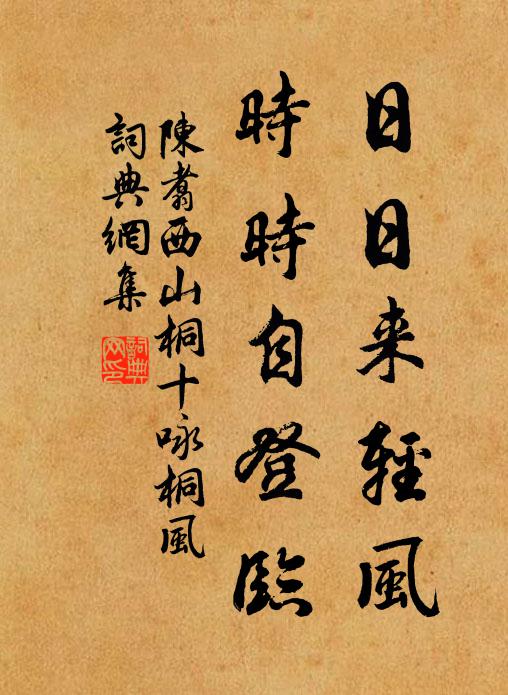 日日来輕風
時時自登臨
陳翥西山桐十咏桐風
詞典網集
詞典網印